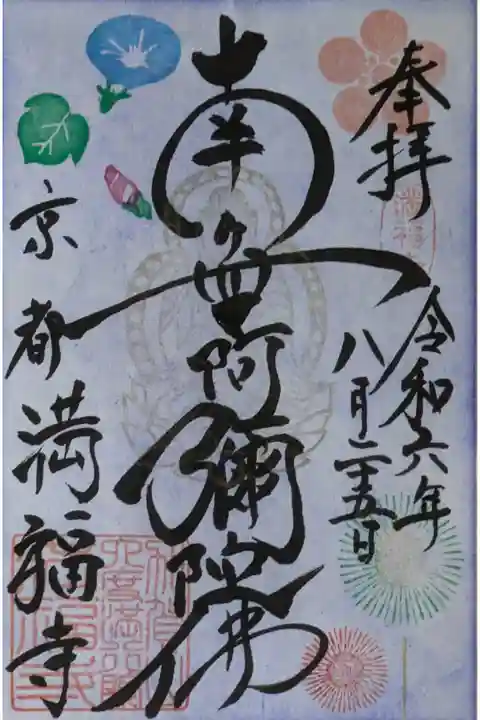 奉拝
令和六年
八月二十五日
南無阿彌陀佛
京都満福寺